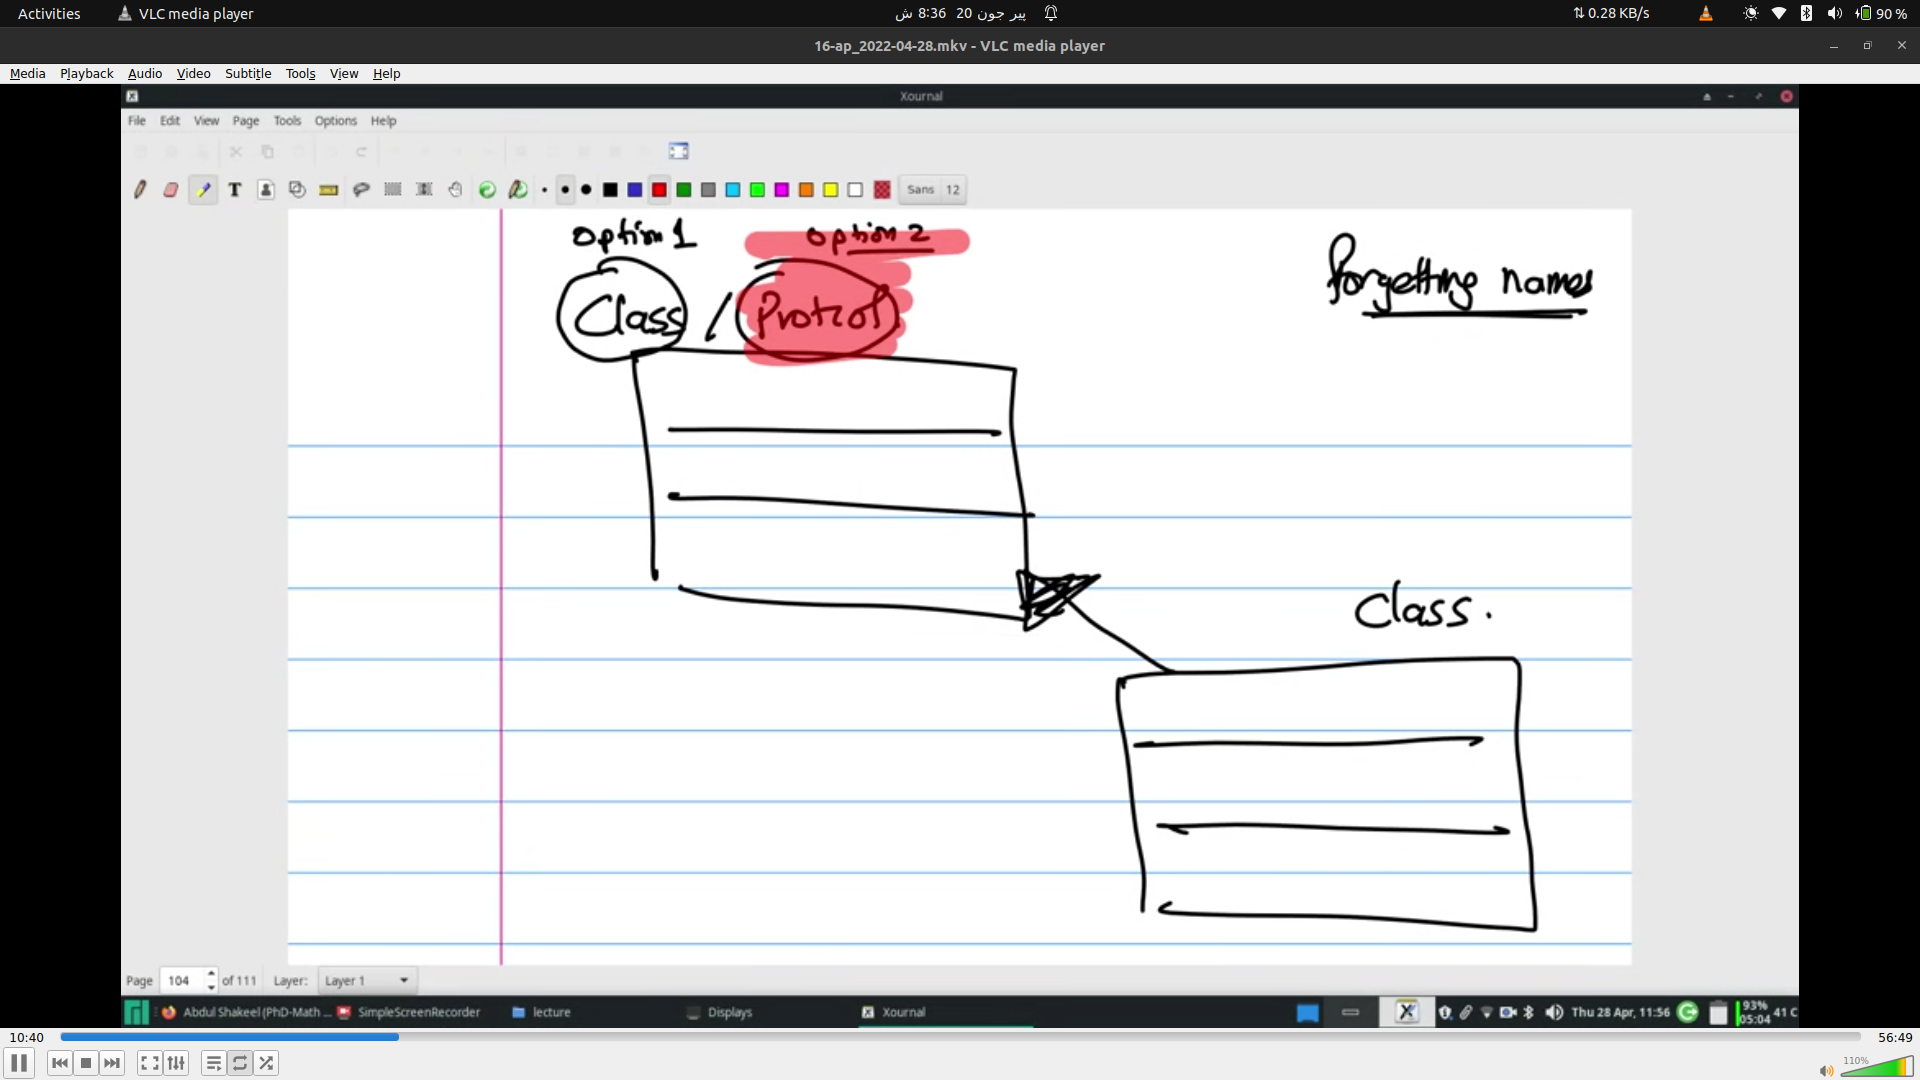 Activities VLC media player پیر جون 20 8:36 ش 0.28 KB/s 90 %
16-ap_2022-04-28.mkv - VLC media player
Media Playback Audio Video Subtitle Tools View Help
Xournal
File Edit View Page Tools Options Help
Sans 12
option 1 option 2
Class / Protcol
forgetting names
Class.
Page 104 of 111 Layer: Layer 1
Abdul Shakeel (PhD-Math ... SimpleScreenRecorder lecture Displays Xournal Thu 28 Apr, 11:56 93% 05:04 41 C
10:40 56:49
110%